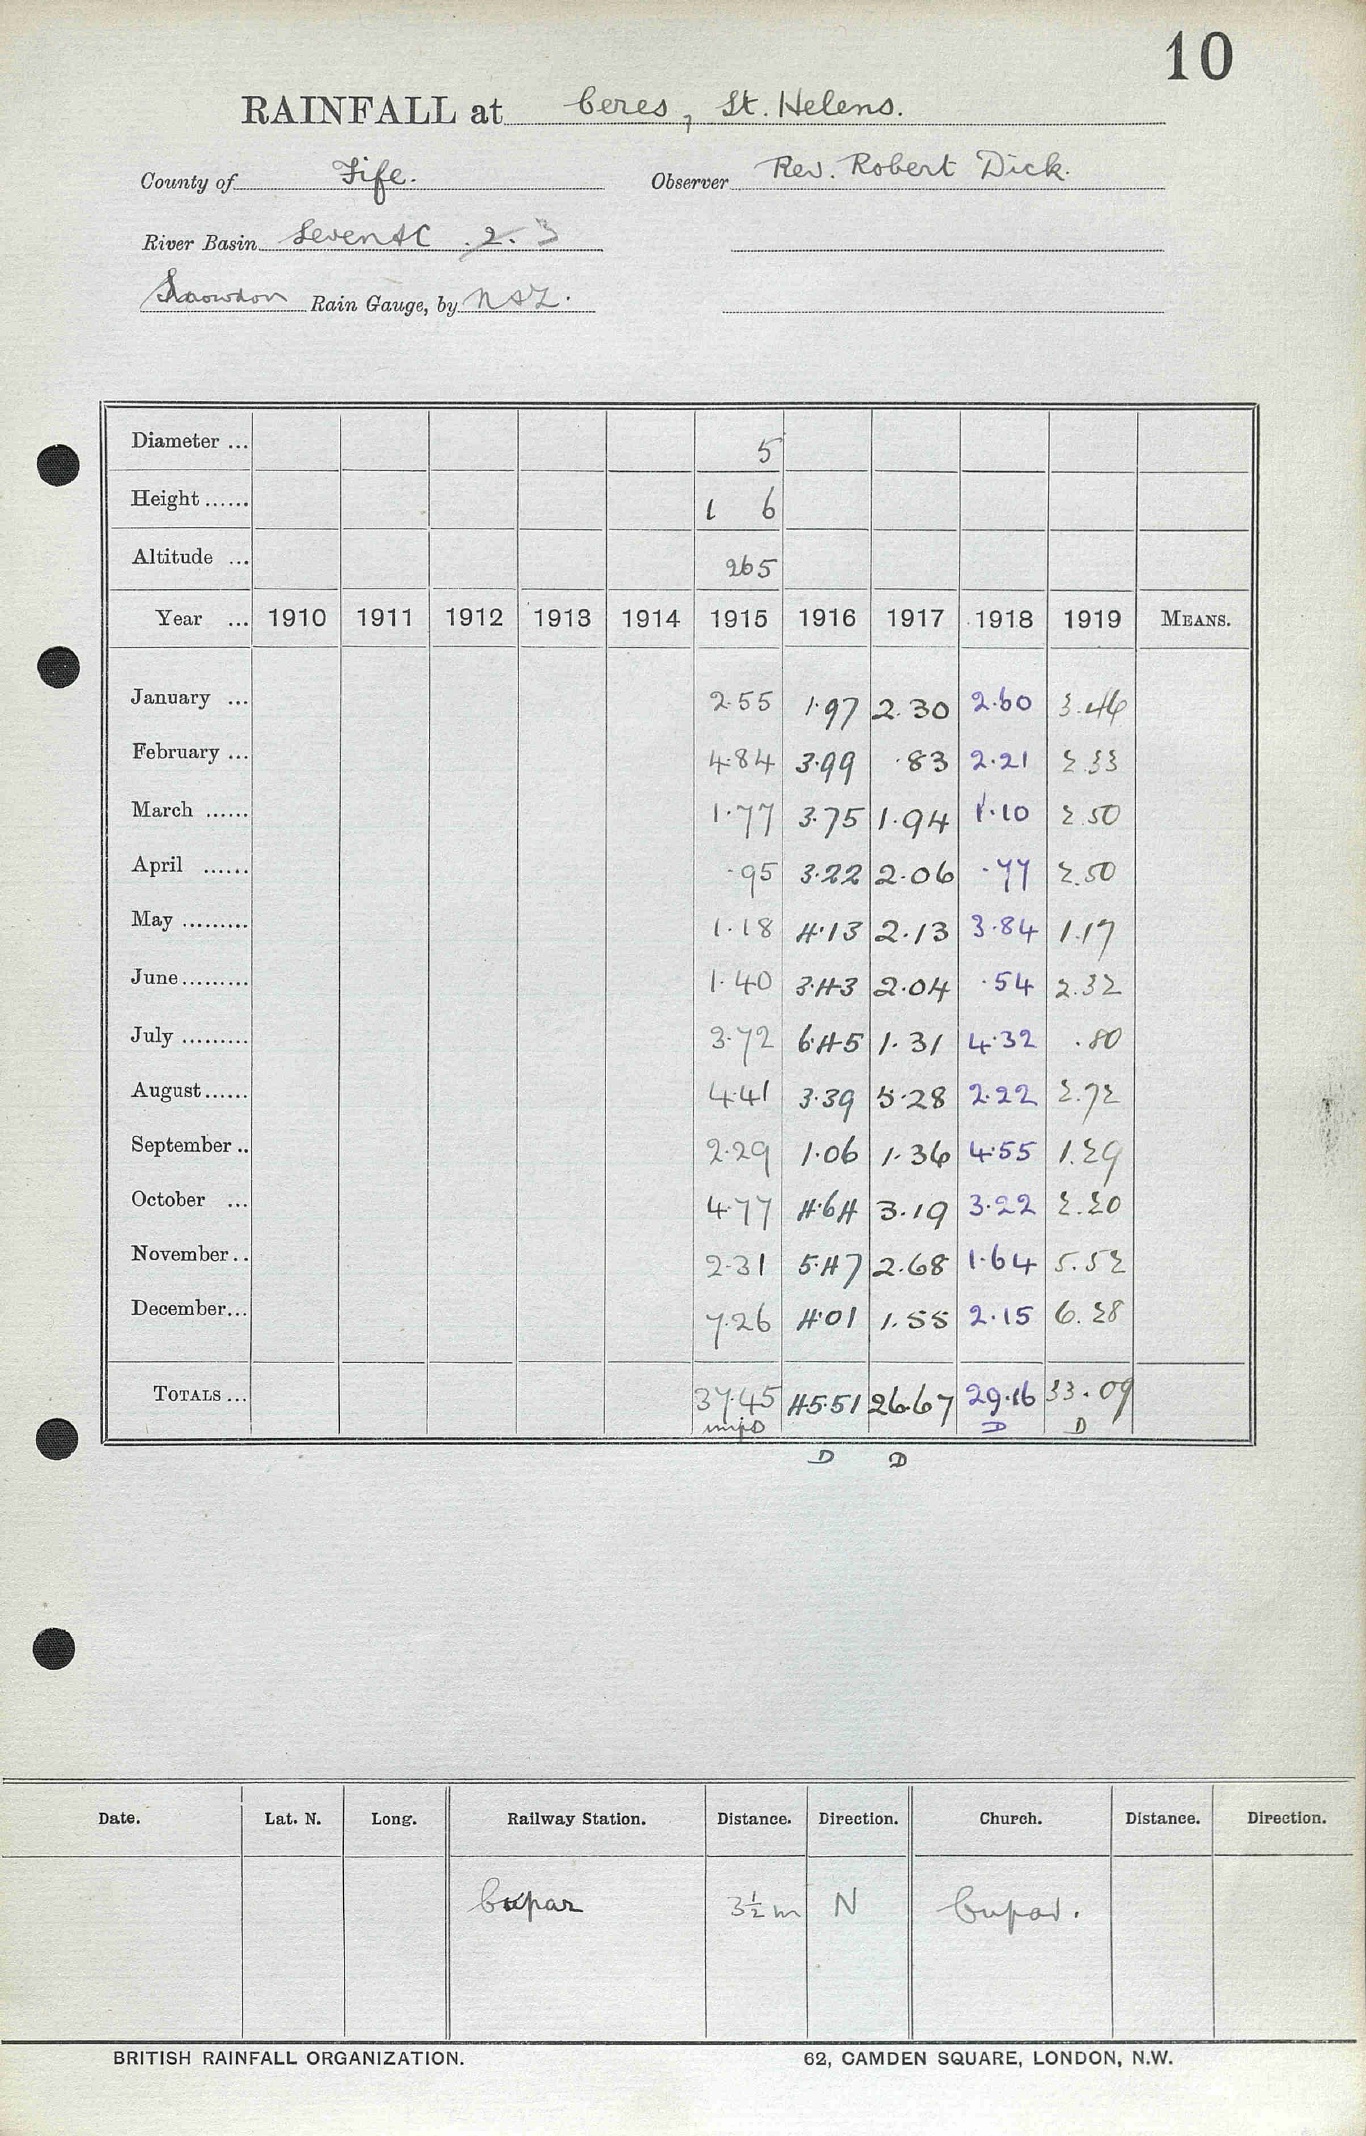 10
RAINFALL at Ceres, St. Helens.
County of Fife. Observer Rev. Robert Dick.
River Basin 2. 3
Snowdon Rain Gauge, by N&Z.
Diameter ... 5
Height ...... 1 6
Altitude ... 265
Year ... 1910 1911 1912 1913 1914 1915 1916 1917 1918 1919 MEANS.
January ... 2.55 1.97 2.30 2.60 3.46
February ... 4.84 3.99 .83 2.21 2.33
March ...... 1.77 3.75 1.94 1.10 2.50
April ...... .95 3.22 2.06 .77 2.50
May ......... 1.18 4.13 2.13 3.84 1.17
June ......... 1.40 3.43 2.04 .54 2.32
July ......... 3.72 6.45 1.31 4.32 .80
August ...... 4.41 3.39 5.28 2.22 2.72
September .. 2.29 1.06 1.36 4.55 1.29
October ... 4.77 4.64 3.19 3.22 2.20
November .. 2.31 5.47 2.68 1.64 5.52
December ... 7.26 4.01 1.55 2.15 6.28
TOTALS ... 37.45 45.51 26.67 29.16 33.09
D D
D D
Date. Lat. N. Long. Railway Station. Distance. Direction. Church. Distance. Direction.
Cupar 3½ m N Cupar.
BRITISH RAINFALL ORGANIZATION. 62, CAMDEN SQUARE, LONDON, N.W.